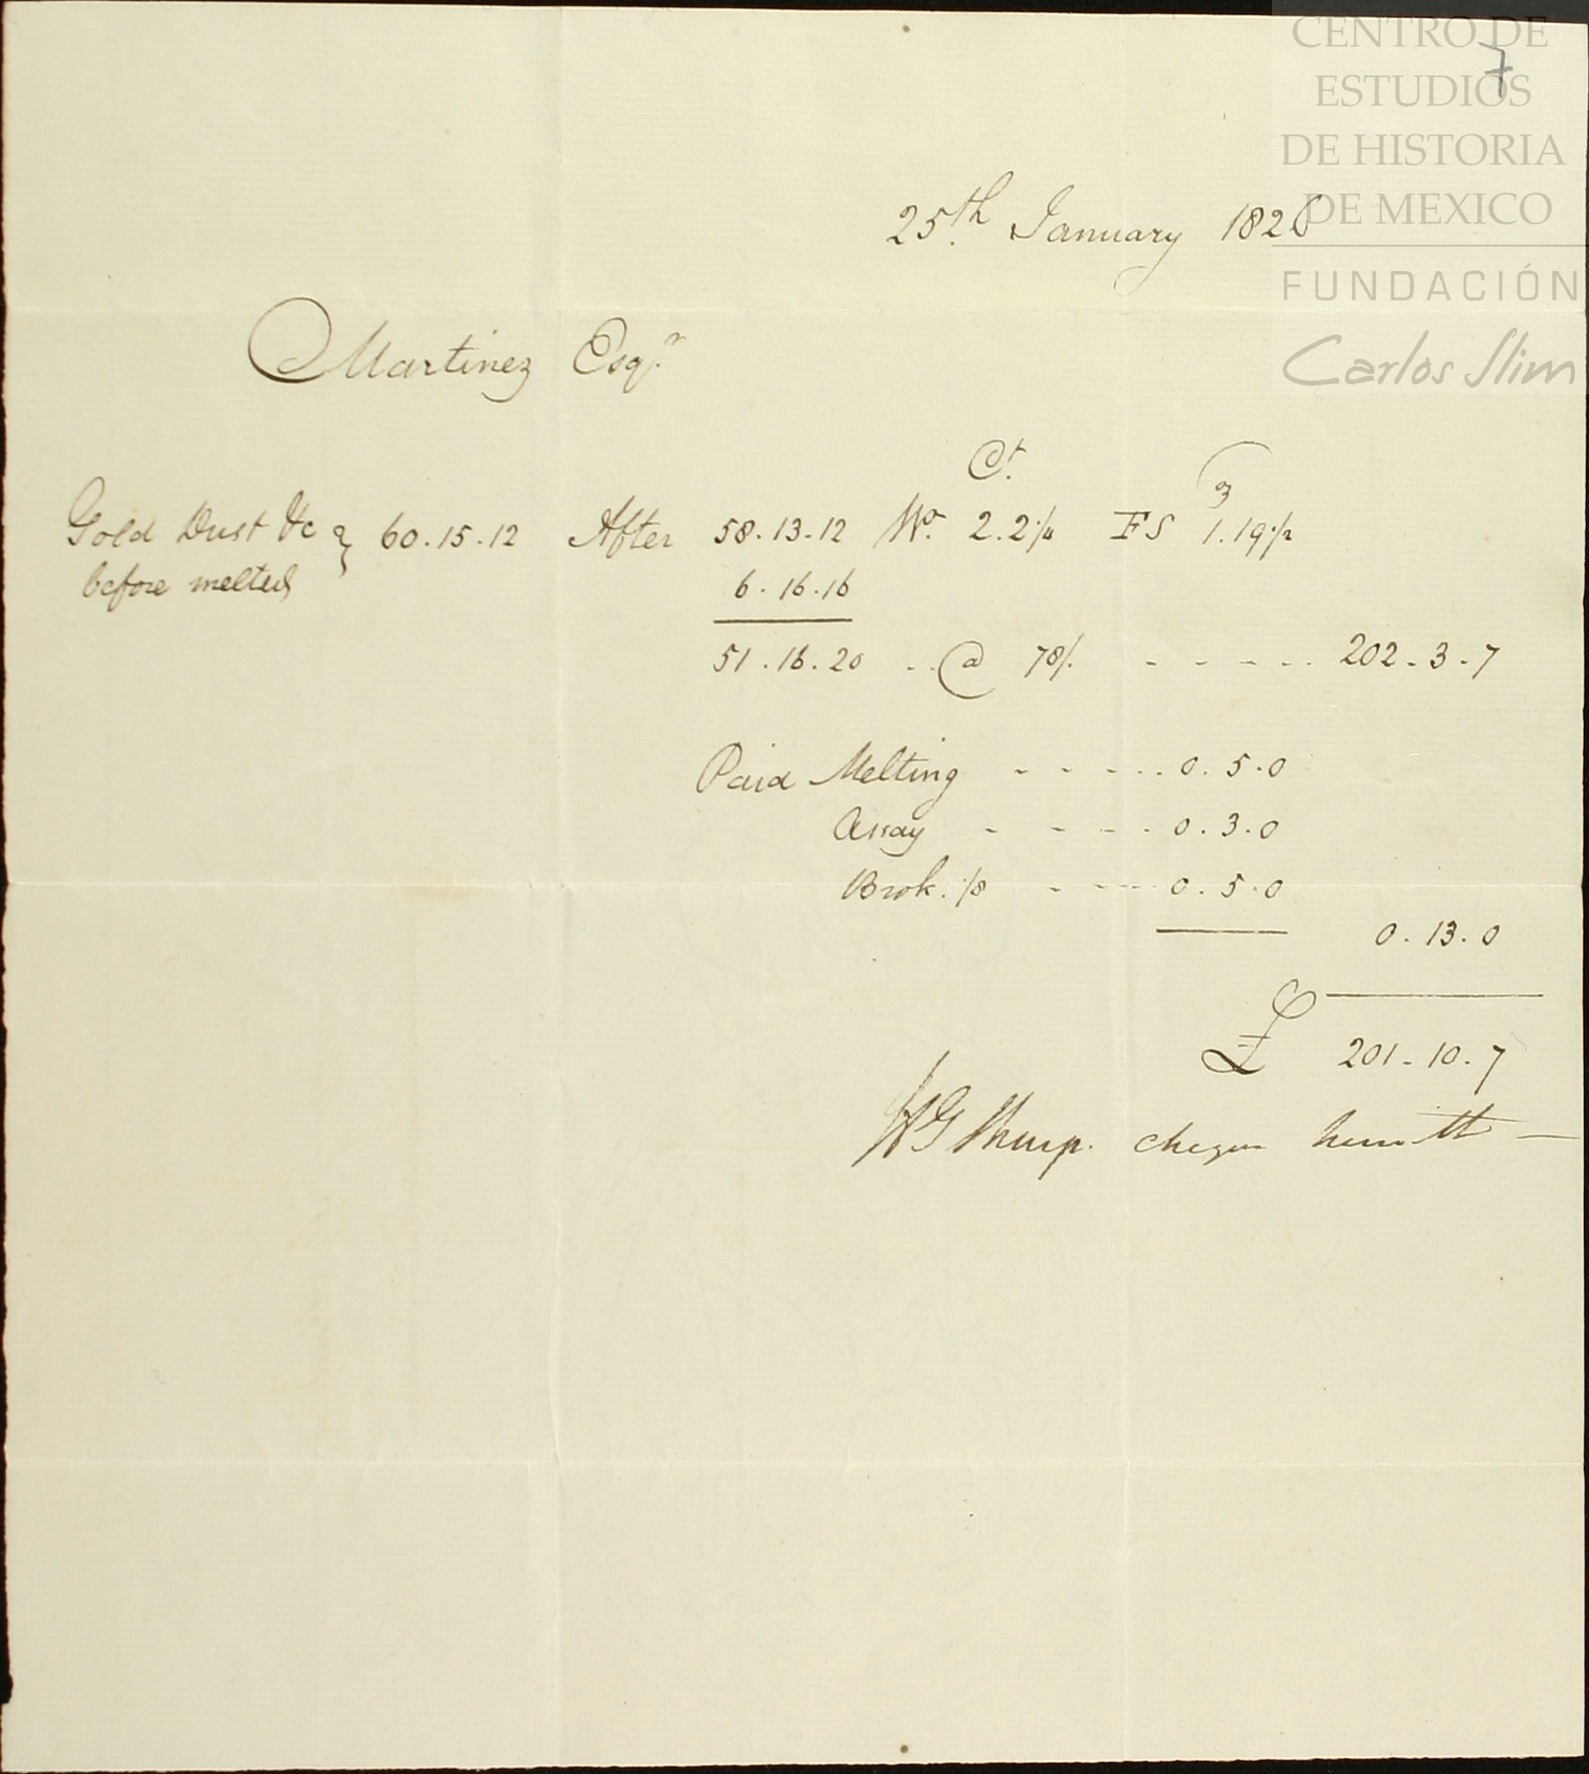 CENTRO DE
ESTUDIOS
DE HISTORIA
DE MEXICO
FUNDACIÓN
Carlos Slim
7
25th January 182
Martinez Esqr
Ct. oz
Gold Dust &c } 60.15.12 After 58.13.12 Wo. 2.2 1/4 FS 1.19 1/2
before melted 6.16.16
51.16.20 .. @ 78/. - - - - . . 202.3.7
Paid Melting - - - - . . 0.5.0
Assay - - - - . 0.3.0
Brok. 1/8 - - - - 0.5.0
0.13.0
£ 201.10.7